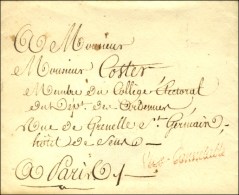 A Monsieur
Monsieur Coster
Membre du Collége Electoral
du Dép.t des Ardennes,
Rue de Grenelle St. Germain,
hôtel de Sens
A Paris